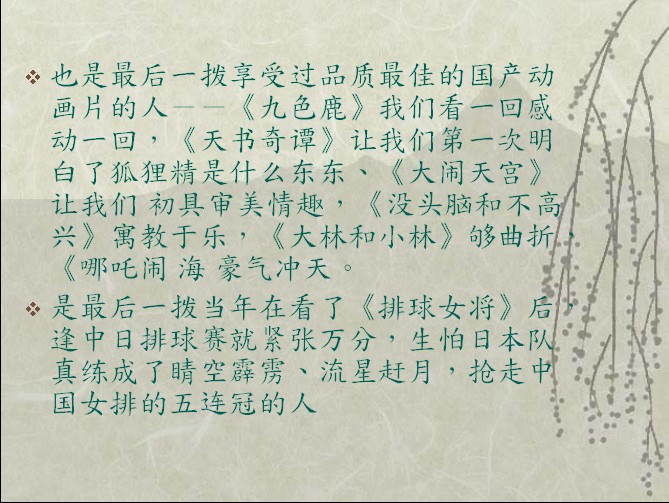 也是最后一拨享受过品质最佳的国产动
画片的人——《九色鹿》我们看一回感
动一回，《天书奇谭》让我们第一次明
白了狐狸精是什么东东、《大闹天宫》
让我们 初具审美情趣，《没头脑和不高
兴》寓教于乐，《大林和小林》够曲折，
《哪吒闹 海 豪气冲天。
是最后一拨当年在看了《排球女将》后，
逢中日排球赛就紧张万分，生怕日本队
真练成了晴空霹雳、流星赶月，抢走中
国女排的五连冠的人